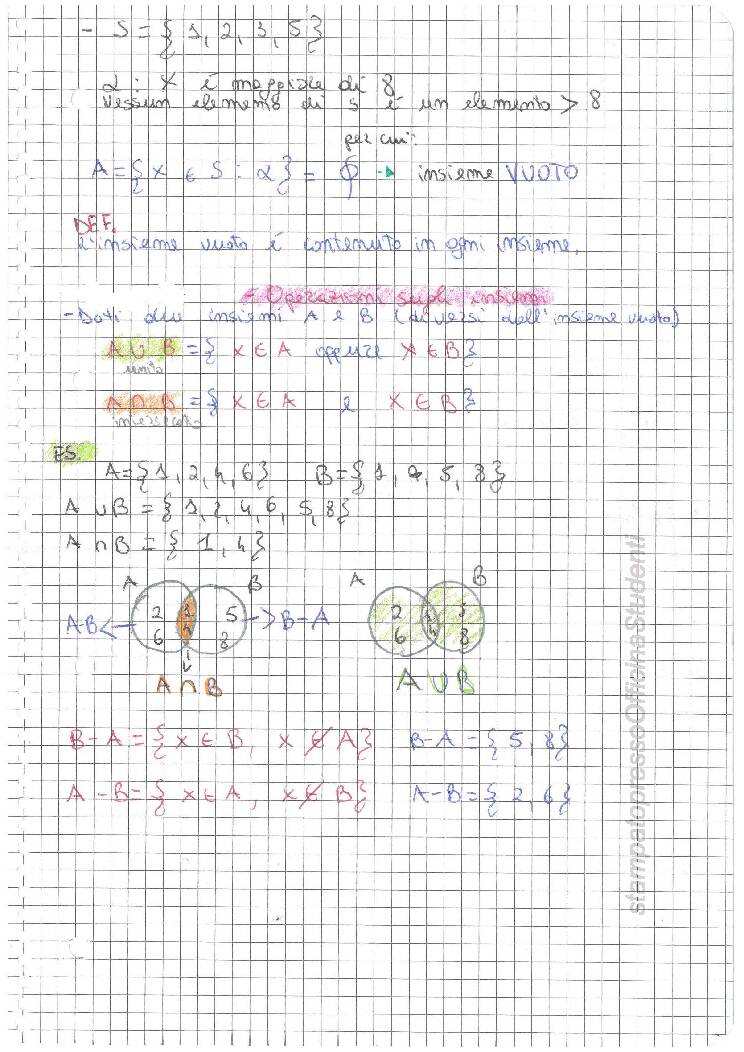 - S = { 1, 2, 3, 5}
α : x é maggiore di 8
nessun elemento di S é un elemento > 8
per cui:
A = { x ∈ S : α} = ϕ → insieme VUOTO
DEF.
L'insieme vuoto é contenuto in ogni insieme.
- Operazioni sugli insiemi
- Dati due insiemi A e B (diversi dall'insieme vuoto)
A ∪ B = { x ∈ A oppure x ∈ B}
unito
A ∩ B = { x ∈ A e x ∈ B}
ES.
A = {1, 2, 4, 6} B = {1, 4, 5, 8}
A ∪ B = {1, 2, 4, 6, 5, 8}
A ∩ B = { 1, 4}
A B A B
2 1 5 2 1 5
A-B < > B-A
6 4 8 6 4 8
A ∩ B A ∪ B
B - A = { x ∈ B, x ∉ A} B - A = { 5, 8}
A - B = { x ∈ A, x ∉ B} A - B = { 2, 6}
stampatopressoOfficinaStudenti